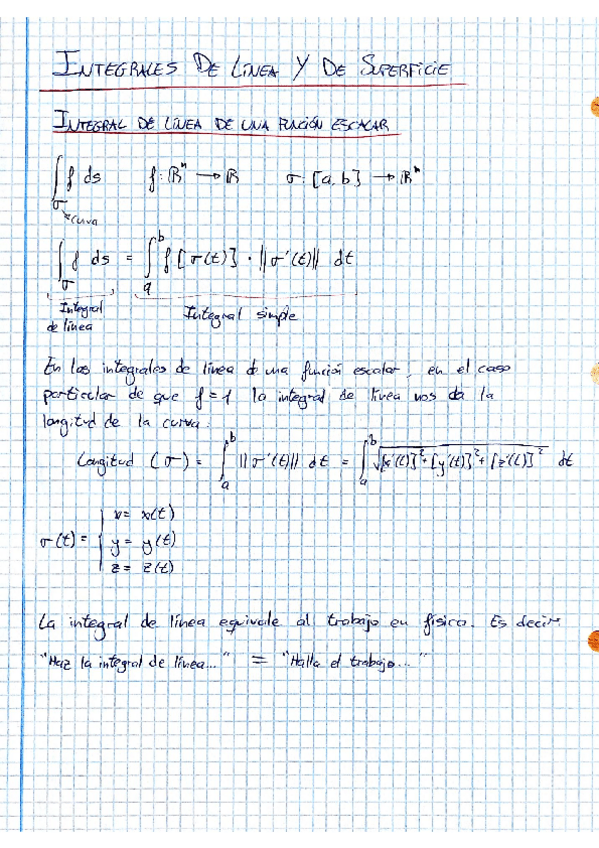 INTEGRALES DE LÍNEA Y DE SUPERFICIE
INTEGRAL DE LÍNEA DE UNA FUNCIÓN ESCALAR
∫_σ f ds f: ℝⁿ → ℝ σ: [a, b] → ℝⁿ
curva
∫_σ f ds = ∫_a^b f[σ(t)] · ||σ'(t)|| dt
Integral de línea Integral simple
En las integrales de línea d una función escalar, en el caso
particular de que f = 1 la integral de línea nos da la
longitud de la curva.
Longitud (σ) = ∫_a^b ||σ'(t)|| dt = ∫_a^b √([x'(t)]² + [y'(t)]² + [z'(t)]²) dt
x = x(t)
σ(t) = { y = y(t)
z = z(t)
La integral de línea equivale al trabajo en física. Es decir
"Haz la integral de línea..." = "Halla el trabajo..."